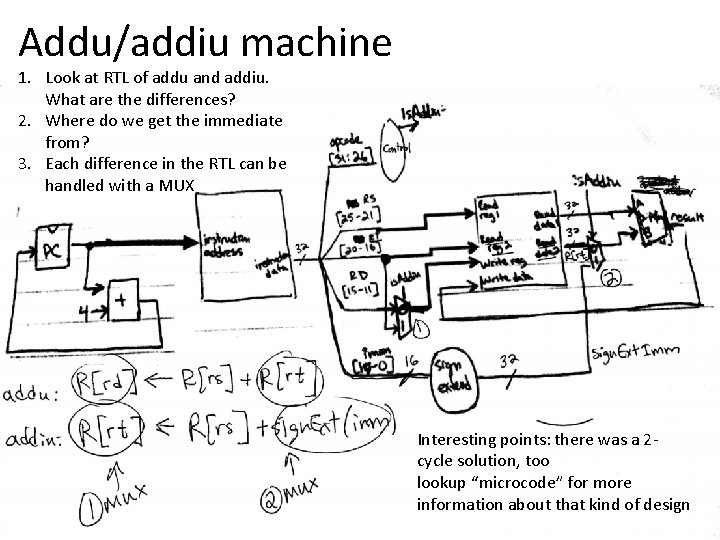 Addu/addiu machine
1. Look at RTL of addu and addiu.
What are the differences?
2. Where do we get the immediate
from?
3. Each difference in the RTL can be
handled with a MUX
IsAddiu
opcode
[31:26]
Control
RS
[25-21]
[20-16]
RD
[15-11]
isAddiu
0
1
①
imm
[15-0]
16
sign
extend
32
SignExtImm
PC
4
+
instruction
address
instruction
data
32
Read
reg1
Read
reg2
Write reg
Write data
Read
data1
Read
data2
32
32
R[rt]
isAddiu
②
A
B
result
addu: R[rd] ← R[rs] + R[rt]
addiu: R[rt] ← R[rs] + SignExt(imm)
① mux
② mux
Interesting points: there was a 2-
cycle solution, too
lookup “microcode” for more
information about that kind of design